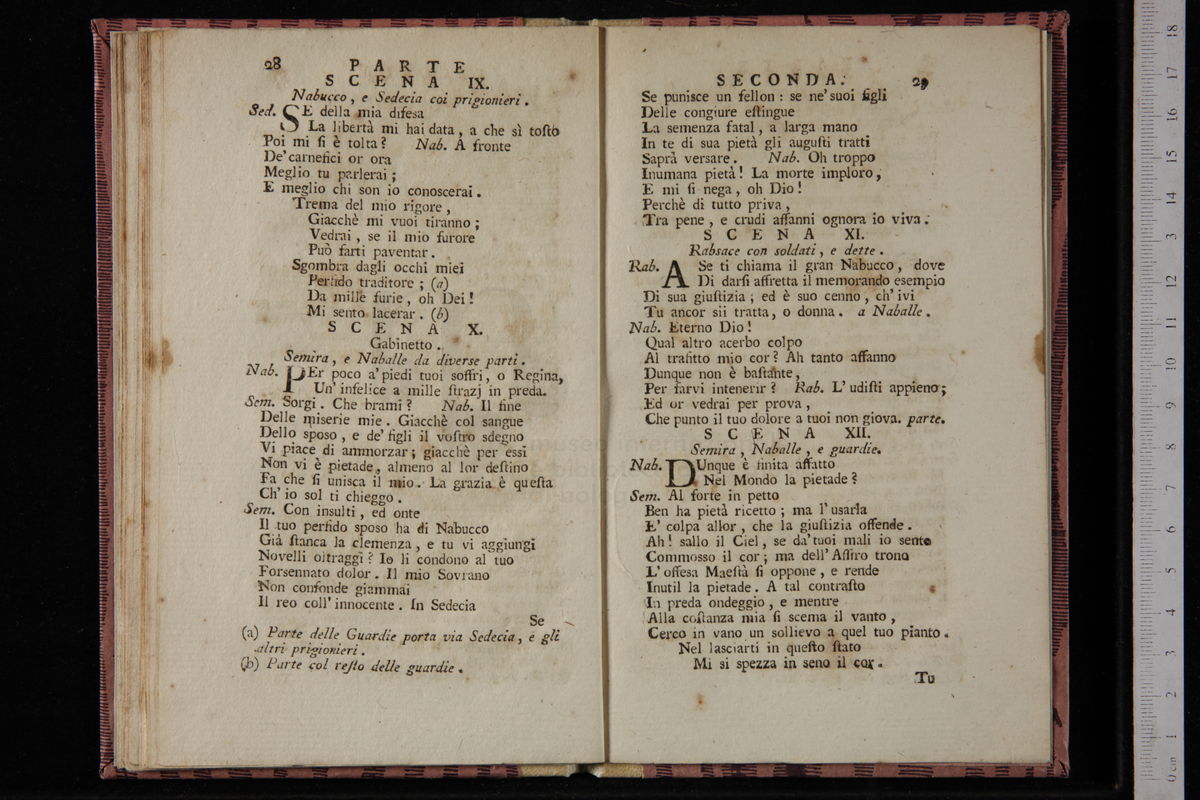 28 PARTE
SCENA IX.
Nabucco, e Sedecia coi prigionieri.
Sed. SE della mia difesa
La libertà mi hai data, a che sì toſto
Poi mi ſi è tolta? Nab. A fronte
De' carnefici or ora
Meglio tu parlerai;
E meglio chi son io conoscerai.
Trema del mio rigore,
Giacchè mi vuoi tiranno;
Vedrai, se il mio furore
Può farti paventar.
Sgombra dagli occhi miei
Perfido traditore; (a)
Da mille furie, oh Dei!
Mi sento lacerar. (b)
SCENA X.
Gabinetto.
Semira, e Naballe da diverse parti.
Nab. PEr poco a' piedi tuoi soffri, o Regina,
Un' infelice a mille ſtrazj in preda.
Sem. Sorgi. Che brami? Nab. Il fine
Delle miserie mie. Giacchè col sangue
Dello sposo, e de' figli il voſtro sdegno
Vi piace di ammorzar; giacchè per essi
Non vi è pietade, almeno al lor deſtino
Fa che ſi unisca il mio. La grazia è queſta
Ch' io sol ti chieggo.
Sem. Con insulti, ed onte
Il tuo perfido sposo ha di Nabucco
Già ſtanca la clemenza, e tu vi aggiungi
Novelli oltraggi? Io li condono al tuo
Forsennato dolor. Il mio Sovrano
Non confonde giammai
Il reo coll' innocente. In Sedecia
Se
(a) Parte delle Guardie porta via Sedecia, e gli
altri prigionieri.
(b) Parte col reſto delle guardie.
SECONDA. 29
Se punisce un fellon: se ne' suoi figli
Delle congiure eſtingue
La semenza fatal, a larga mano
In te di sua pietà gli auguſti tratti
Saprà versare. Nab. Oh troppo
Inumana pietà! La morte imploro,
E mi ſi nega, oh Dio!
Perchè di tutto priva,
Tra pene, e crudi affanni ognora io viva.
SCENA XI.
Rabsace con soldati, e dette.
Rab. A Se ti chiama il gran Nabucco, dove
Di darſi affretta il memorando esempio
Di sua giuſtizia; ed è suo cenno, ch' ivi
Tu ancor sii tratta, o donna. a Naballe.
Nab. Eterno Dio!
Qual altro acerbo colpo
Al trafitto mio cor? Ah tanto affanno
Dunque non è baſtante,
Per farvi intenerir? Rab. L' udiſti appieno;
Ed or vedrai per prova,
Che punto il tuo dolore a tuoi non giova. parte.
SCENA XII.
Semira, Naballe, e guardie.
Nab. DUnque è finita affatto
Nel Mondo la pietade?
Sem. Al forte in petto
Ben ha pietà ricetto; ma l' usarla
E' colpa allor, che la giuſtizia offende.
Ah! sallo il Ciel, se da' tuoi mali io sento
Commosso il cor; ma dell' Aſſiro trono
L' offesa Maeſtà ſi oppone, e rende
Inutil la pietade. A tal contraſto
In preda ondeggio, e mentre
Alla coſtanza mia ſi scema il vanto,
Cerco in vano un sollievo a quel tuo pianto.
Nel lasciarti in queſto ſtato
Mi si spezza in seno il cor.
Tu